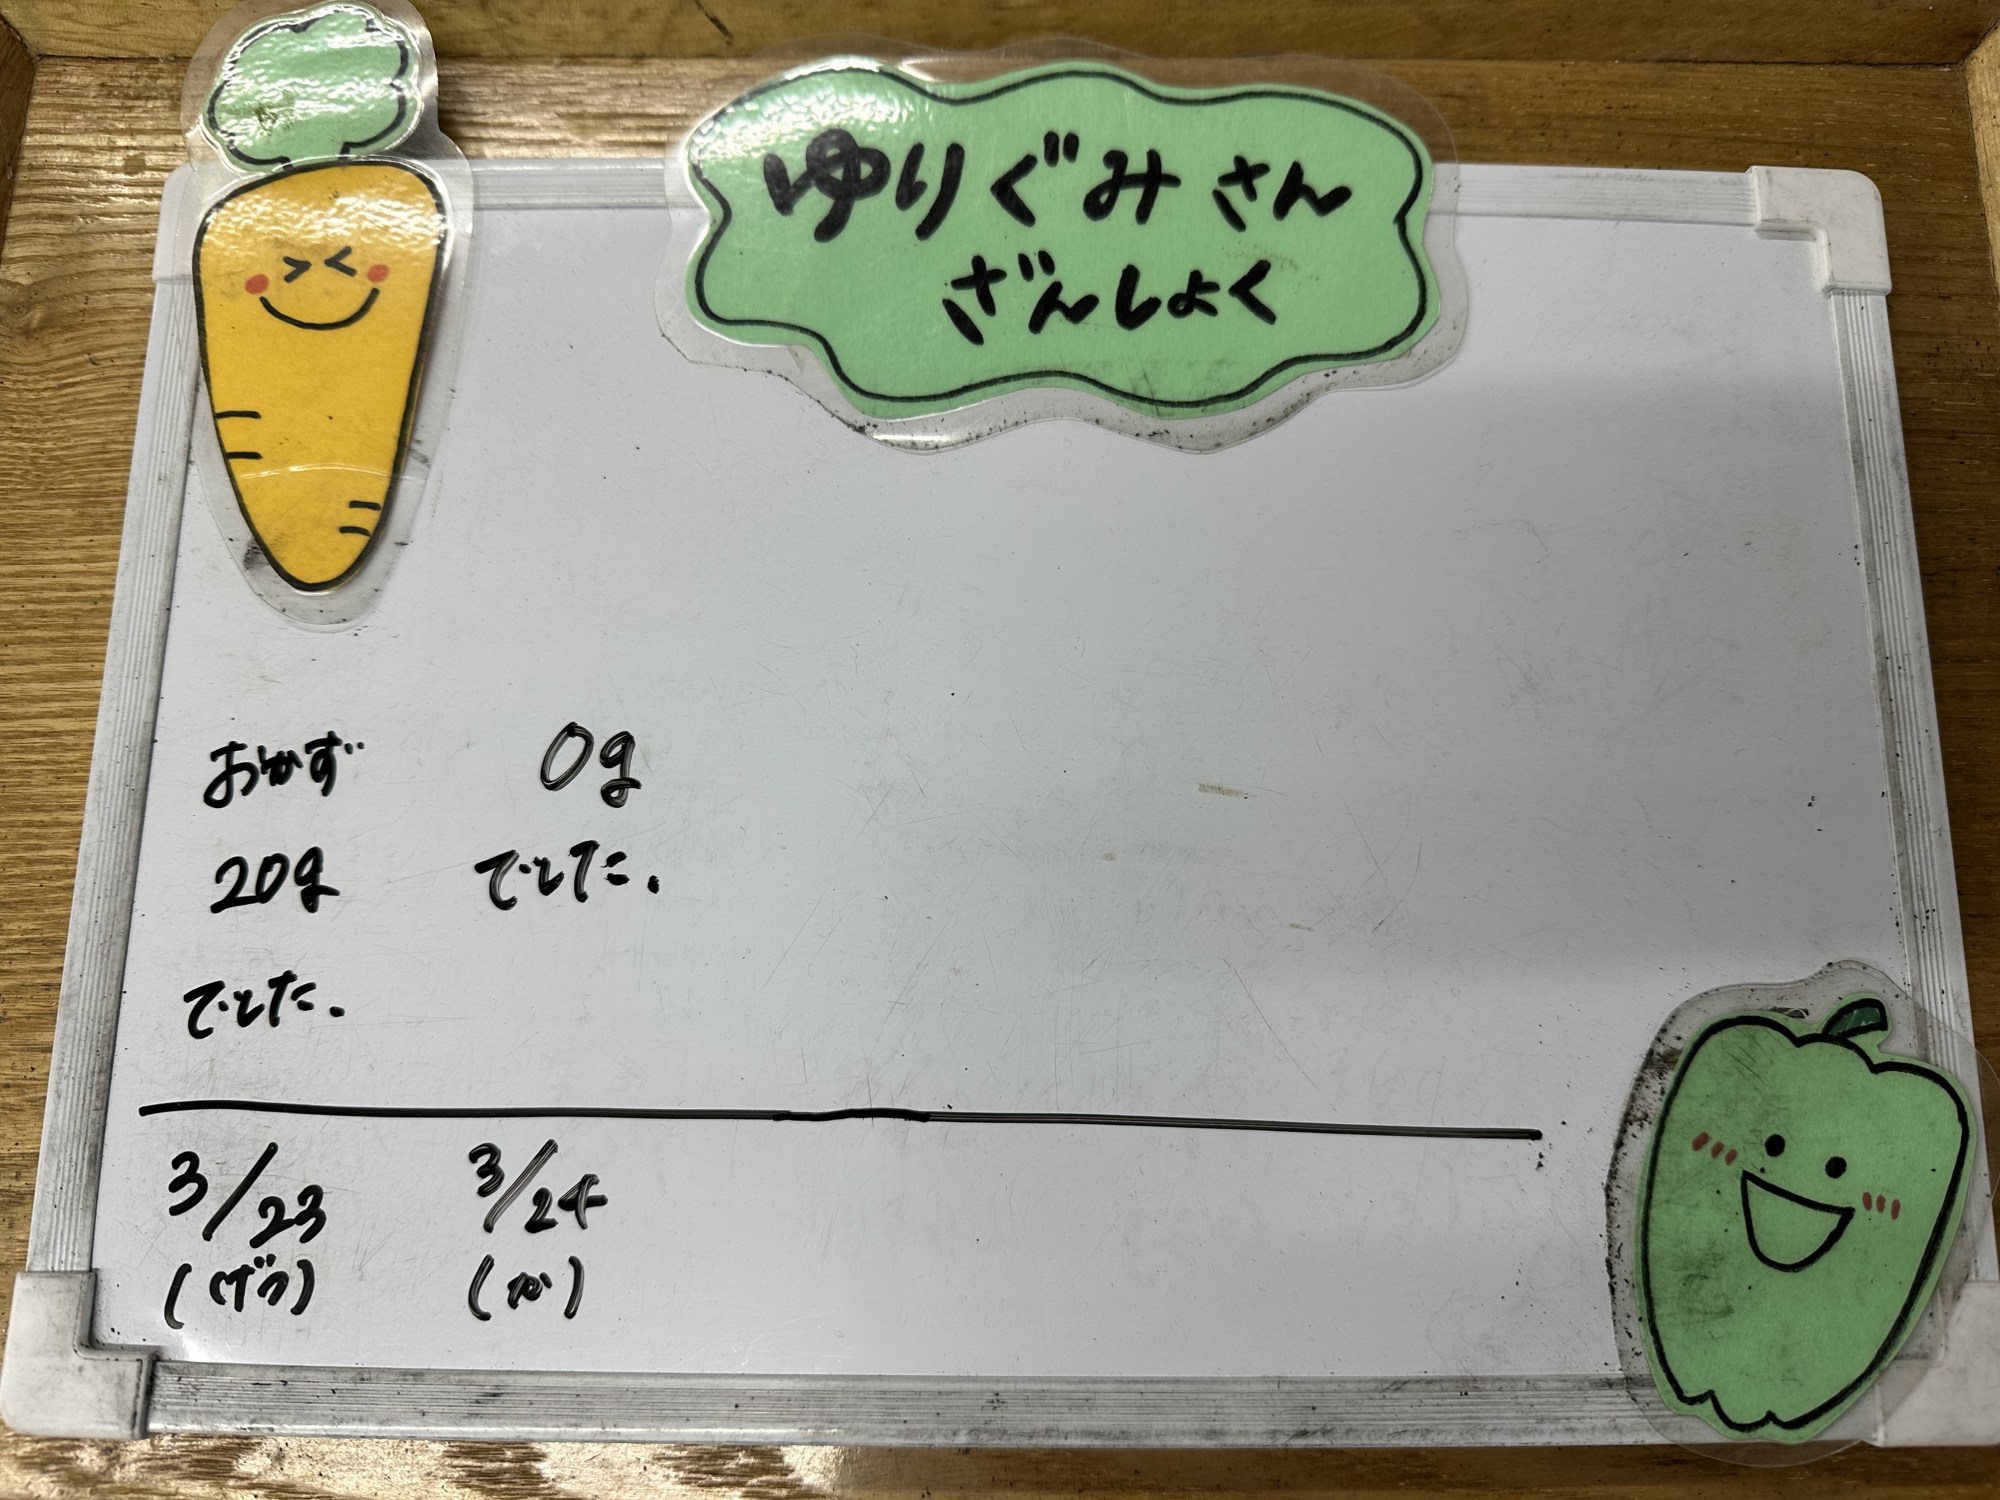 ゆりぐみさん
ざんしょく
おかず
20g
でした.
0g
でした.
3/23
(げつ)
3/24
(か)